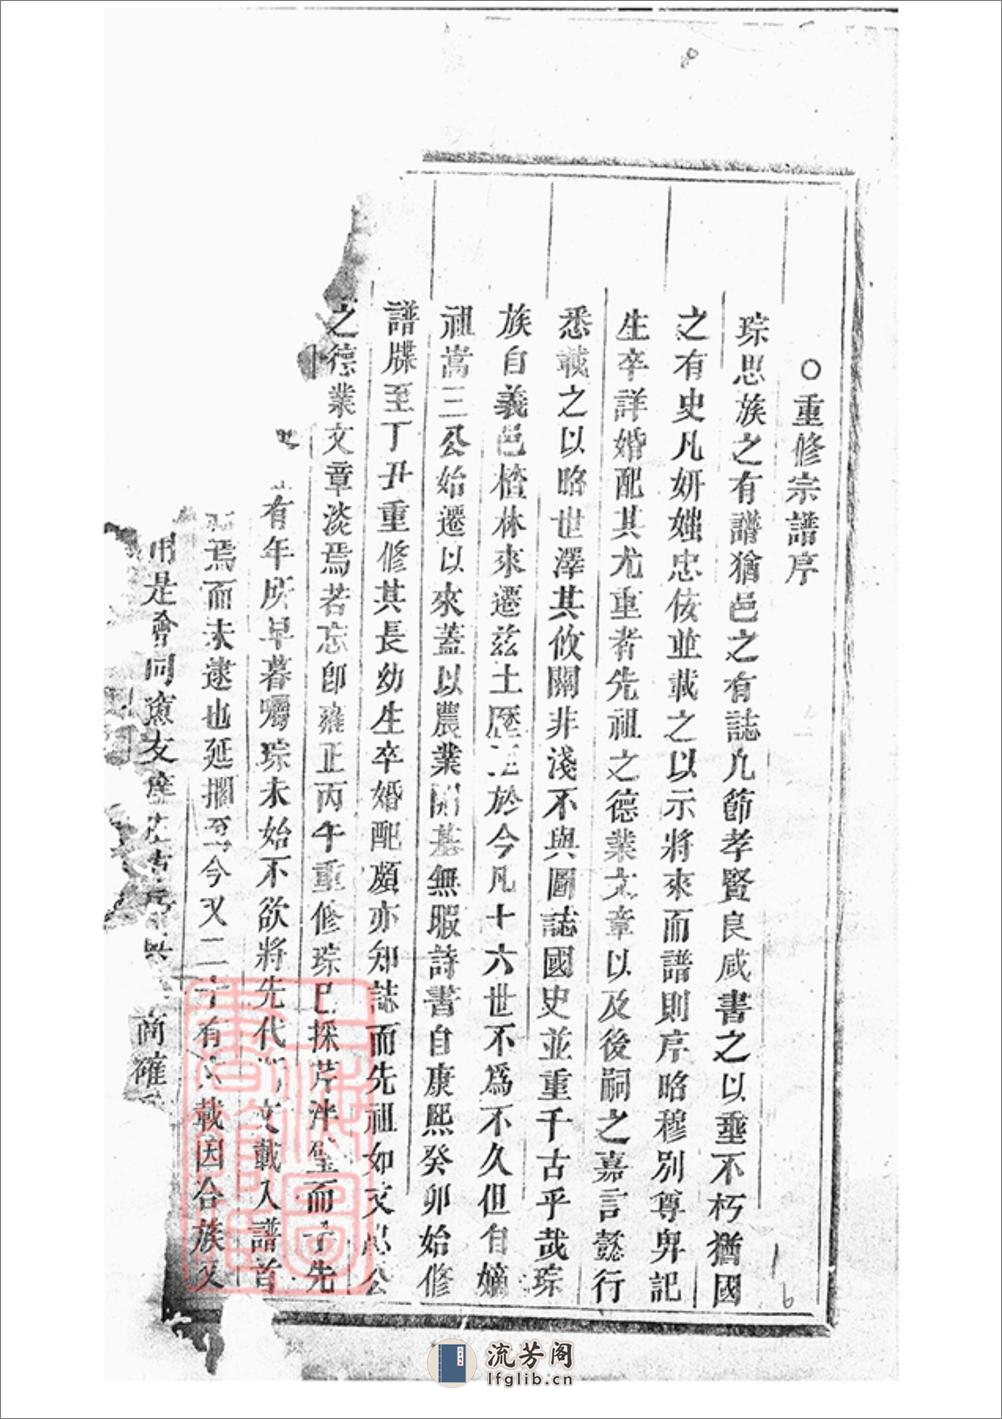 ○重修宗譜序
琮思族之有譜猶邑之有誌凡節孝賢良咸書之以垂不朽猶國
之有史凡妍媸忠佞並載之以示將來而譜則序昭穆別尊卑記
生卒詳婚配其尤重者先祖之德業文章以及後嗣之嘉言懿行
悉載之以昭世澤其攸關非淺不與圖誌國史並重千古乎哉琮
族自義邑楂林來遷茲土歷 於今凡十六世不為不久但自嫡
祖嵩三公始遷以來蓋以農業開基無暇詩書自康熙癸卯始修
譜牒至丁丑重修其長幼生卒婚配頗亦知誌而先祖如文 公
之德業文章淡焉若忘即雍正丙午重修琮已採芹泮璧而 先
有年所早暮囑琮未始不欲將先代 文載入譜首
焉而未逮也延擱至今又二十有 載因合族又
用是會同 友 商確
流芳阁
lfglib.cn